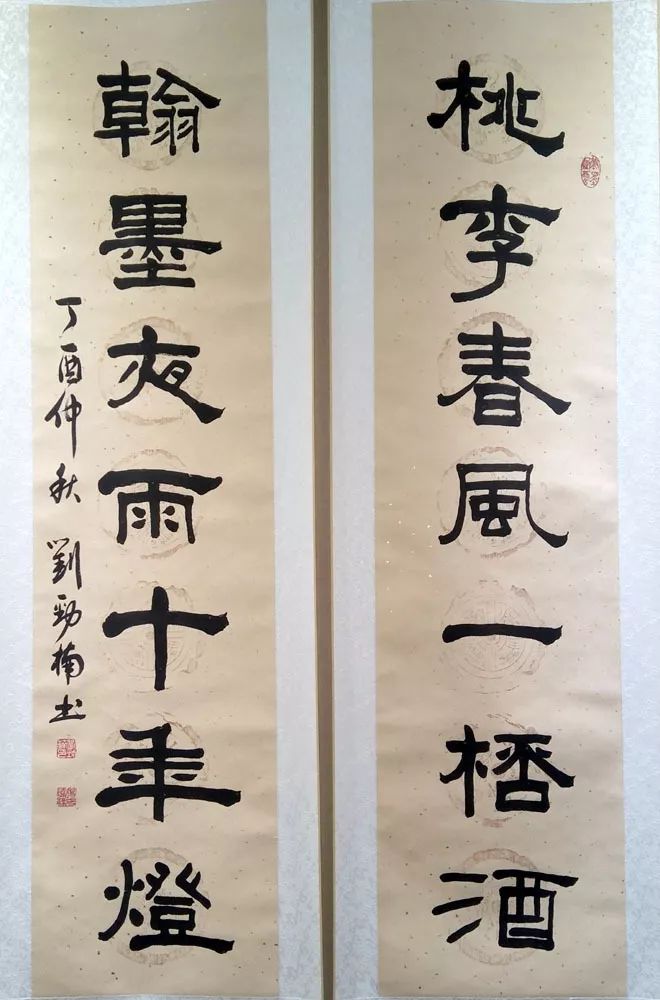 桃李春風一桮酒
翰墨夜雨十年燈
丁酉仲秋劉勁楠书